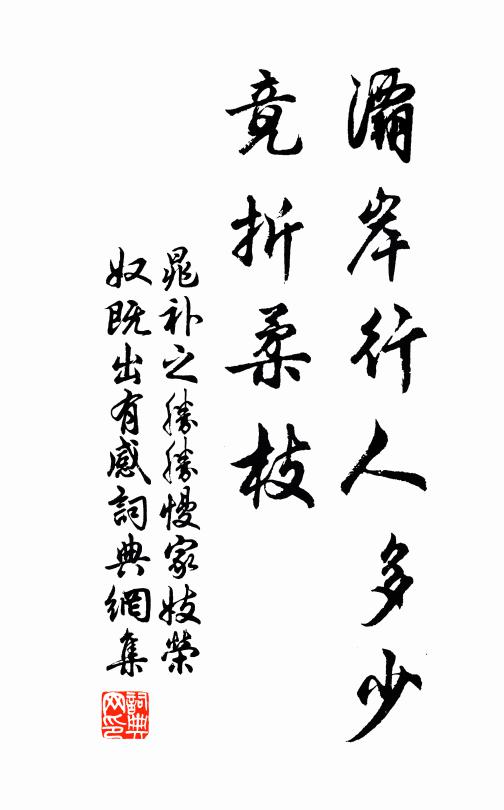 灞岸行人多少
竟折柔枝
晁补之勝勝慢家妓榮
奴既出有感詞典網集
詞典网印